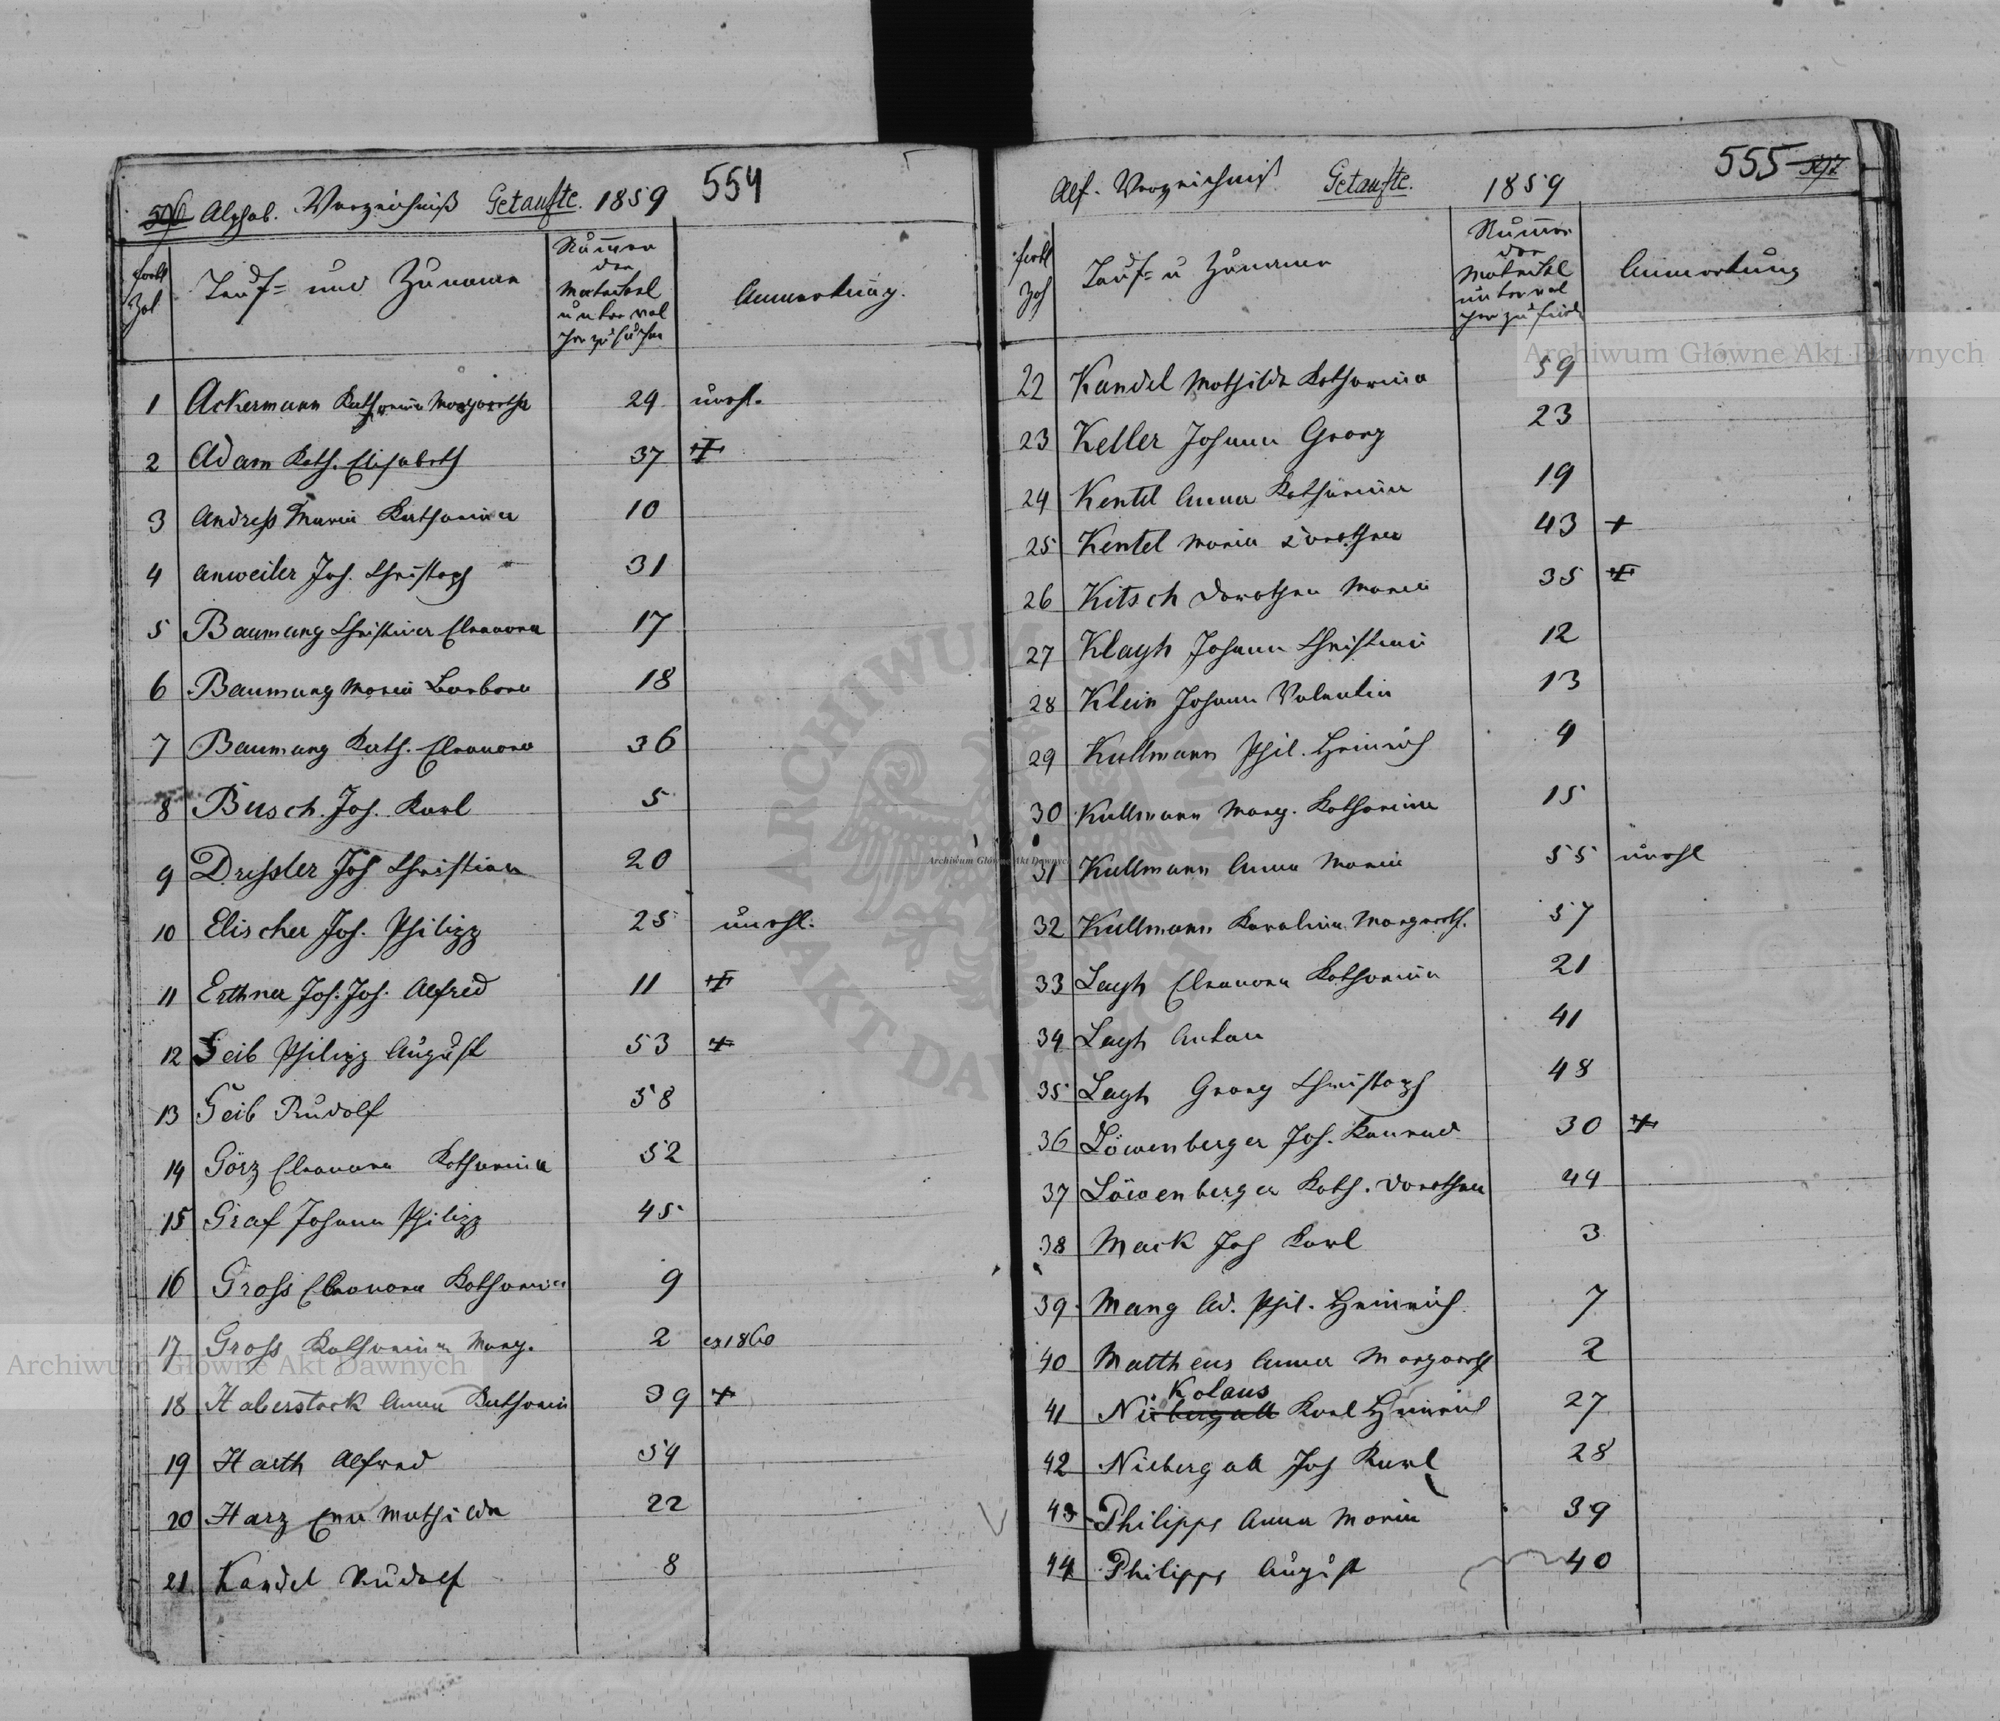 506 Alphab. Verzeichniß Getaufte. 1859 554
fortl Zal
Tauf= und Zuname
Numer der Matrikel unter wel cher zu suchen
Anmerkung.
1 Ackermann Katharina Margaretha 29 unehl.
2 Adam Kath. Elisabeth 37 ‡
3 Andreß Maria Katharina 10
4 Anweiler Joh. Christoph 31
5 Baumung Christina Eleonora 17
6 Baumung Maria Barbara 18
7 Baumung Kath. Eleonora 36
8 Busch. Joh. Karl 5
9 Dreßler Joh Christian 20
10 Elischer Joh. Philipp 25 unehl.
11 Erthner Joh. Jos. Alfred 11 ‡
12 Geib Philipp August 53 ‡
13 Geib Rudolf 58
14 Görz Eleonora Katharina 52
15 Graf Johann Philipp 45
16 Groß Eleonora Katharina 9
17 Groß Katharina Marg. 2 ex 1860
18 Haberstock Anna Katharin 39 ‡
19 Harth Alfred 54
20 Harz Eva Mathilde 22
21 Kandel Rudolf 8
Alf. Verzeichniß Getaufte. 1859 555
fortl Zahl
Tauf= u Zuname
Numer der Matrikel unter wel cher zu find
Anmerkung
22 Kandel Mathilde Katharina 59
23 Keller Johann Georg 23
24 Kentel Anna Katharina 19
25 Kentel Maria Dorothea 43 +
26 Kitsch Dorothea Maria 35 ‡
27 Klayh Johann Christian 12
28 Klein Johann Valentin 13
29 Kullmann Phil. Heinrich 4
30 Kullmann Marg. Katharina 15
31 Kullmann Anna Maria 55 unehl
32 Kullmann Karolina Margareth. 57
33 Layh Eleonora Katharina 21
34 Layh Anton 41
35 Layh Georg Christoph 48
36 Löwenberger Joh. Konrad 30 ‡
37 Löwenberger Kath. Dorothea 44
38 Mack Joh Karl 3
39 Mang Ad. Phil. Heinrich 7
40 Mattheus Anna Margareth 2
kolaus
41 Niebergall Karl Heinrich 27
42 Niebergall Joh Karl 28
43 Philipps Anna Maria 39
44 Philipps August 40
Archiwum Główne Akt Dawnych
Archiwum Główne Akt Dawnych
Archiwum Główne Akt Dawnych